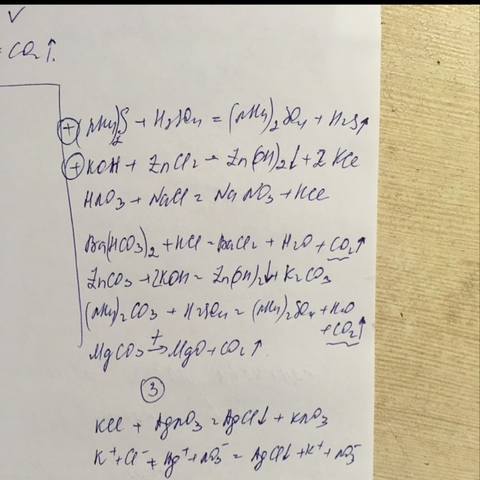 V
= CO2↑.
⊕ (NH4)2S + H2SO4 = (NH4)2SO4 + H2S↑
⊕ KOH + ZnCl2 = Zn(OH)2↓ + 2 KCl
HNO3 + NaCl = NaNO3 + HCl
Ba(HCO3)2 + HCl = BaCl2 + H2O + CO2↑
ZnCO3 + 2KOH = Zn(OH)2↓ + K2CO3
(NH4)2CO3 + H2SO4 = (NH4)2SO4 + H2O
+ CO2↑
MgCO3 t→ MgO + CO2↑.
③
KCl + AgNO3 = AgCl↓ + KNO3
K⁺ + Cl⁻ + Ag⁺ + NO3⁻ = AgCl↓ + K⁺ + NO3⁻